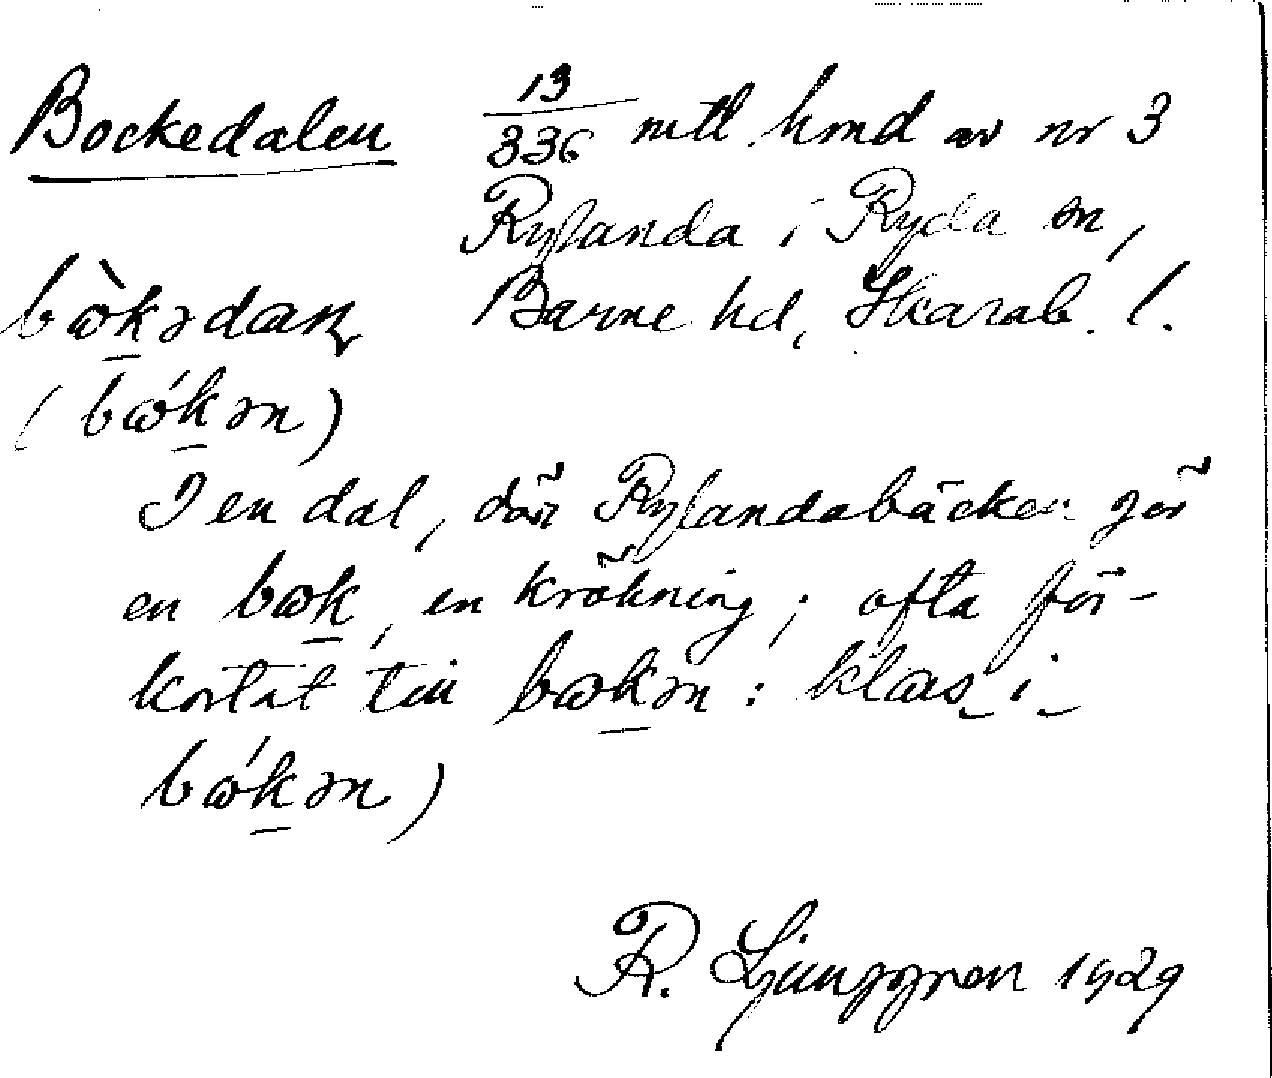 Bockedalen 13/336 mtl hmd av nr 3
Rylanda i Ryda sn,
bɷ̀kədaɳ Barne hd, Skarab. l.
(bɷ́kən)
I en dal, där Rylandabäcken gör
en bɷk, en krökning; ofta för-
kortat till bɷkən: klas i
bɷ́kən)
R. Ljunggren 1929